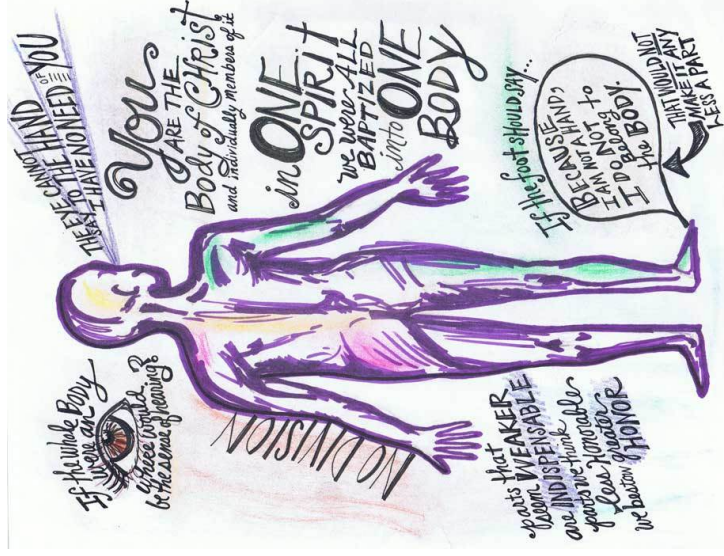 THE EYE CANNOT
SAY TO THE HAND
I HAVE NO NEED OF YOU
You
ARE THE
Body of CHRIST
and individually members of it
in ONE
SPIRIT
we were ALL
BAPTIZED
into ONE
BODY
If the foot SHOULD SAY...
BECAUSE
I AM NOT A HAND,
I AM NOT
I DO Belong to
the BODY.
THAT WOULD NOT
MAKE IT ANY
LESS A PART
If the whole Body
were an
where would
be the sense of hearing?
NO DIVISION
parts that
seem WEAKER
are INDISPENSABLE
parts we think
less Honorable
we bestow greater
HONOR